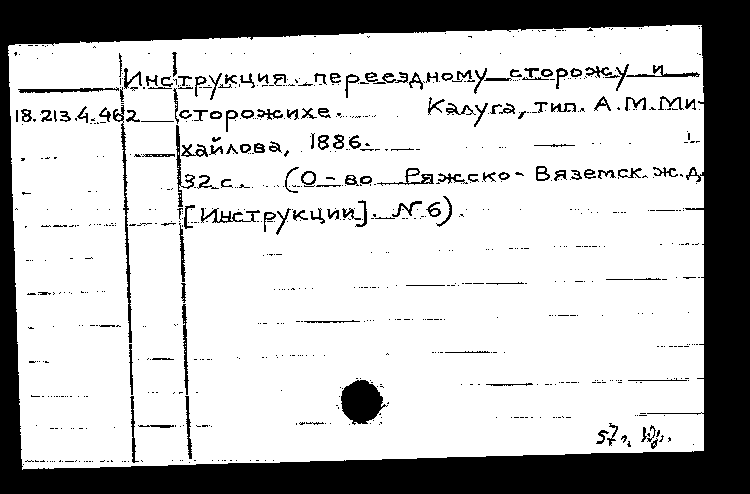 Инструкция переездному сторожу и
18.213.4.462 сторожихе. Калуга, тип. А.М.Ми-
хайлова, 1886.
32 с. (О-во Ряжско-Вяземск. ж.д.
[Инструкции]. № 6).
57 г.